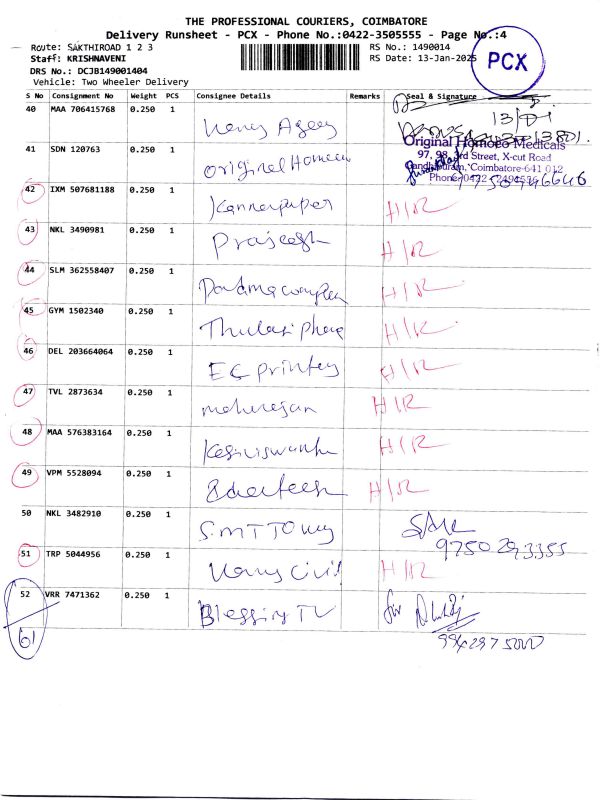 THE PROFESSIONAL COURIERS, COIMBATORE
Delivery Runsheet - PCX - Phone No.:0422-3505555 - Page No.:4
Route: SAKTHIROAD 1 2 3
RS No.: 1490014
Staff: KRISHNAVENI
RS Date: 13-Jan-2025
PCX
DRS No.: DCJB149001404
Vehicle: Two Wheeler Delivery
S No Consignment No Weight PCS Consignee Details Remarks Seal & Signature
40 MAA 706415768 0.250 1
13/01
41 SDN 120763 0.250 1 Original Homoeo
Original Homoeo Medicals
97, 98, 3rd Street, X-cut Road
Gandhipuram, Coimbatore-641 012
Phone: 0422 - 2494556
42 IXM 507681188 0.250 1 H/R
43 NKL 3490981 0.250 1 Prajeesh H/R
44 SLM 362558407 0.250 1 H/R
45 GYM 1502340 0.250 1 H/R
46 DEL 203664064 0.250 1 H/R
47 TVL 2873634 0.250 1 H/R
48 MAA 576383164 0.250 1 H/R
49 VPM 5528094 0.250 1 H/R
50 NKL 3482910 0.250 1
9750293355
51 TRP 5044956 0.250 1 H/R
52 VRR 7471362 0.250 1 Blessing TV
61